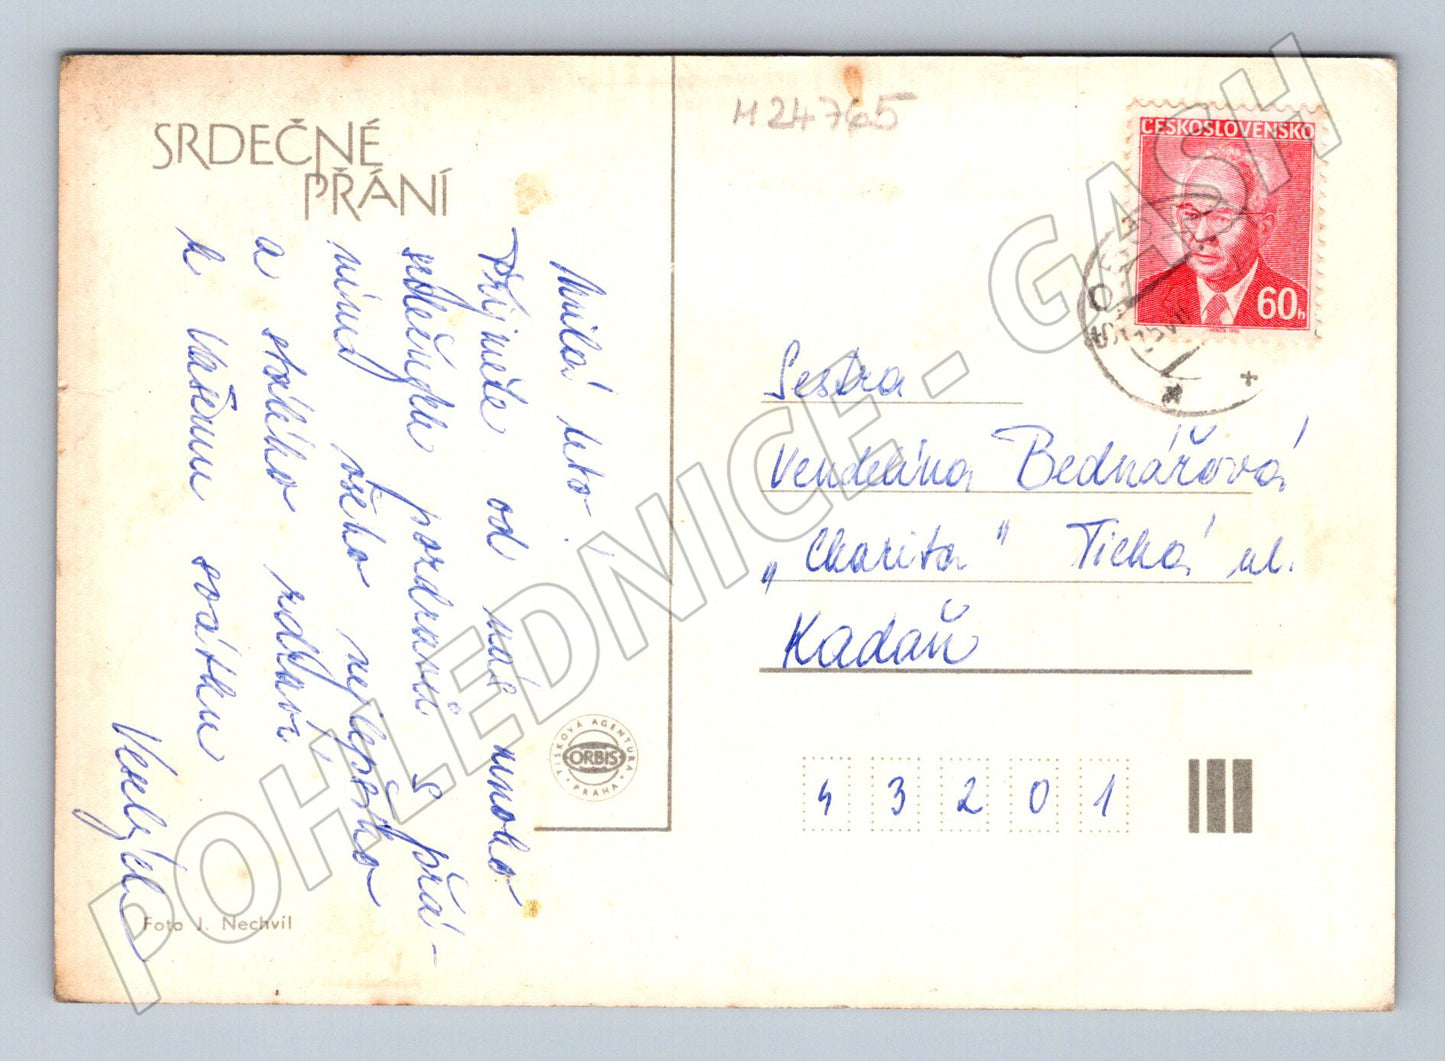 SRDEČNÉ
PŘÁNÍ
Milá teto!
Přijměte od nás mnoho
srdečných pozdravů s přá-
ními všeho nejlepšího
a stálého zdraví
k Vašemu svátku
Foto J. Nechvíl
TISKOVÁ AGENTURA
ORBIS
PRAHA
H24765
ČESKOSLOVENSKO
60h
Sestra
Vendelína Bednářová
„Charita" Tichá ul.
Kadaň
43201
POHLEDNICE - GASH